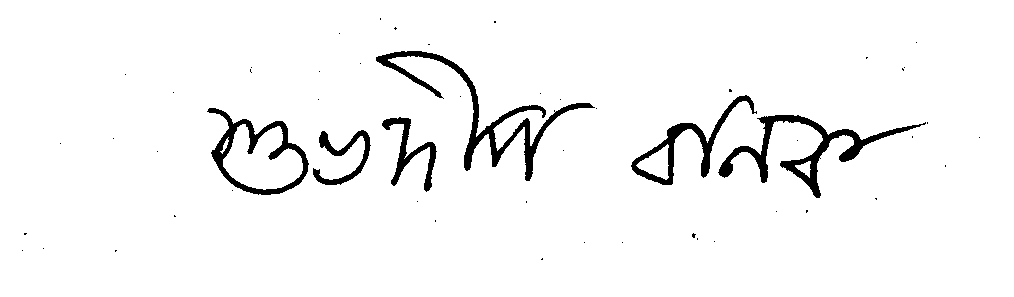 শুভদীপ বনিক